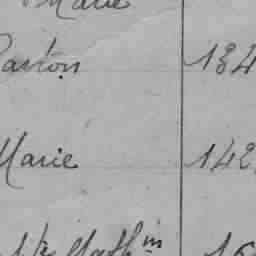 Marie
Gaston 134
Marie 142
Math^in 16